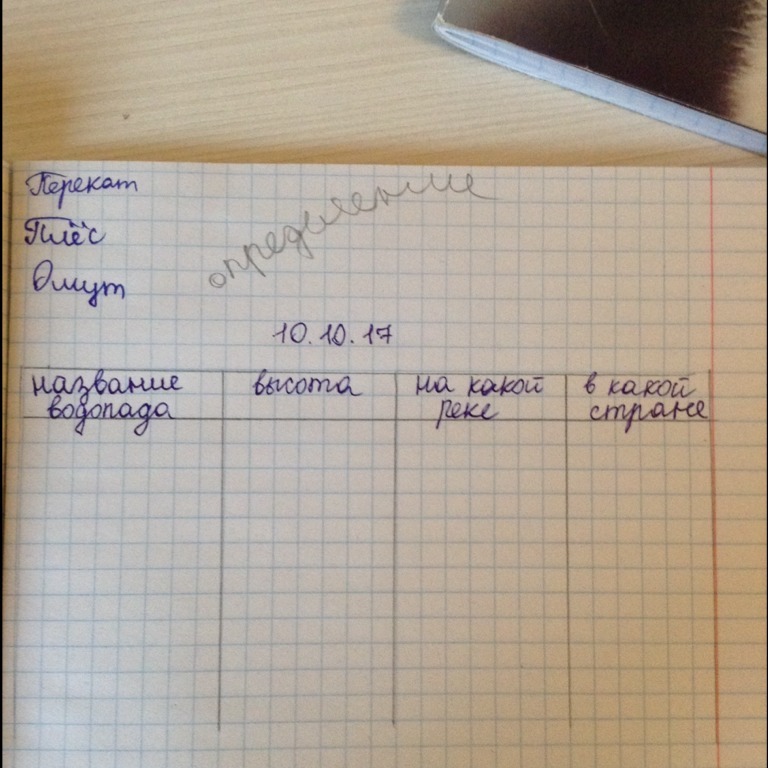 Перекат
Плёс
Омут
определение
10.10.17
название водопада
высота
на какой реке
в какой стране